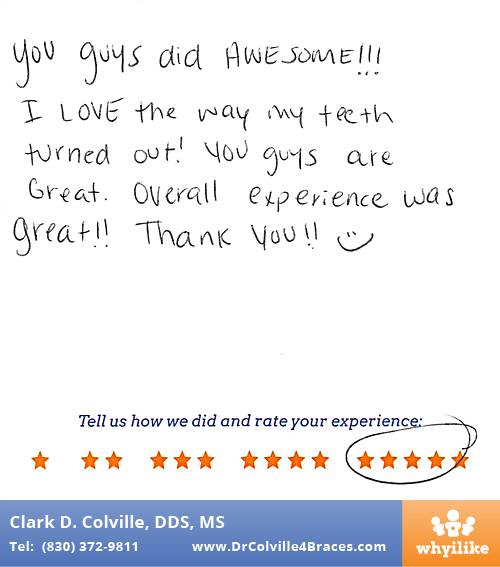 You guys did AWESOME!!!
I LOVE the way my teeth
turned out! You guys are
Great. Overall experience was
great!! Thank you!!
Tell us how we did and rate your experience:
Clark D. Colville, DDS, MS
Tel: (830) 372-9811 www.DrColville4Braces.com
whyilike